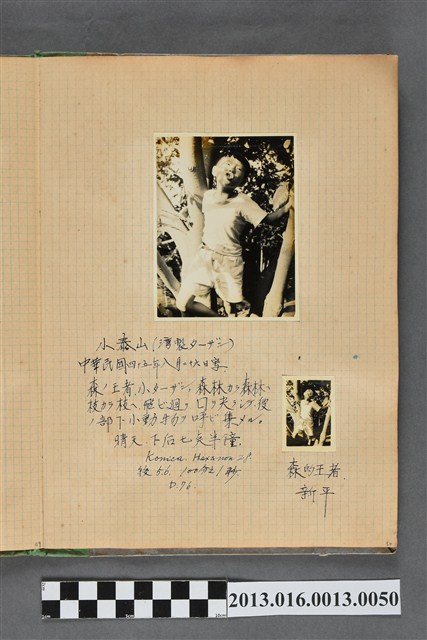 小泰山(湾製ターザン)
中華民國四十五年八月廿六日寫
森ノ王者、小ターザン、森林カラ森林ヘ
枝カラ枝ヘ飛ビ廻リ口ヲ尖ラシテ、彼
ノ部下小動物ヲ呼ビ集メル。
晴天 下后七点半
Konica. Hexanon 2.8.
絞 5.6. 100分之1秒
D.96.
森的王者、
新平
2013.016.0013.0050